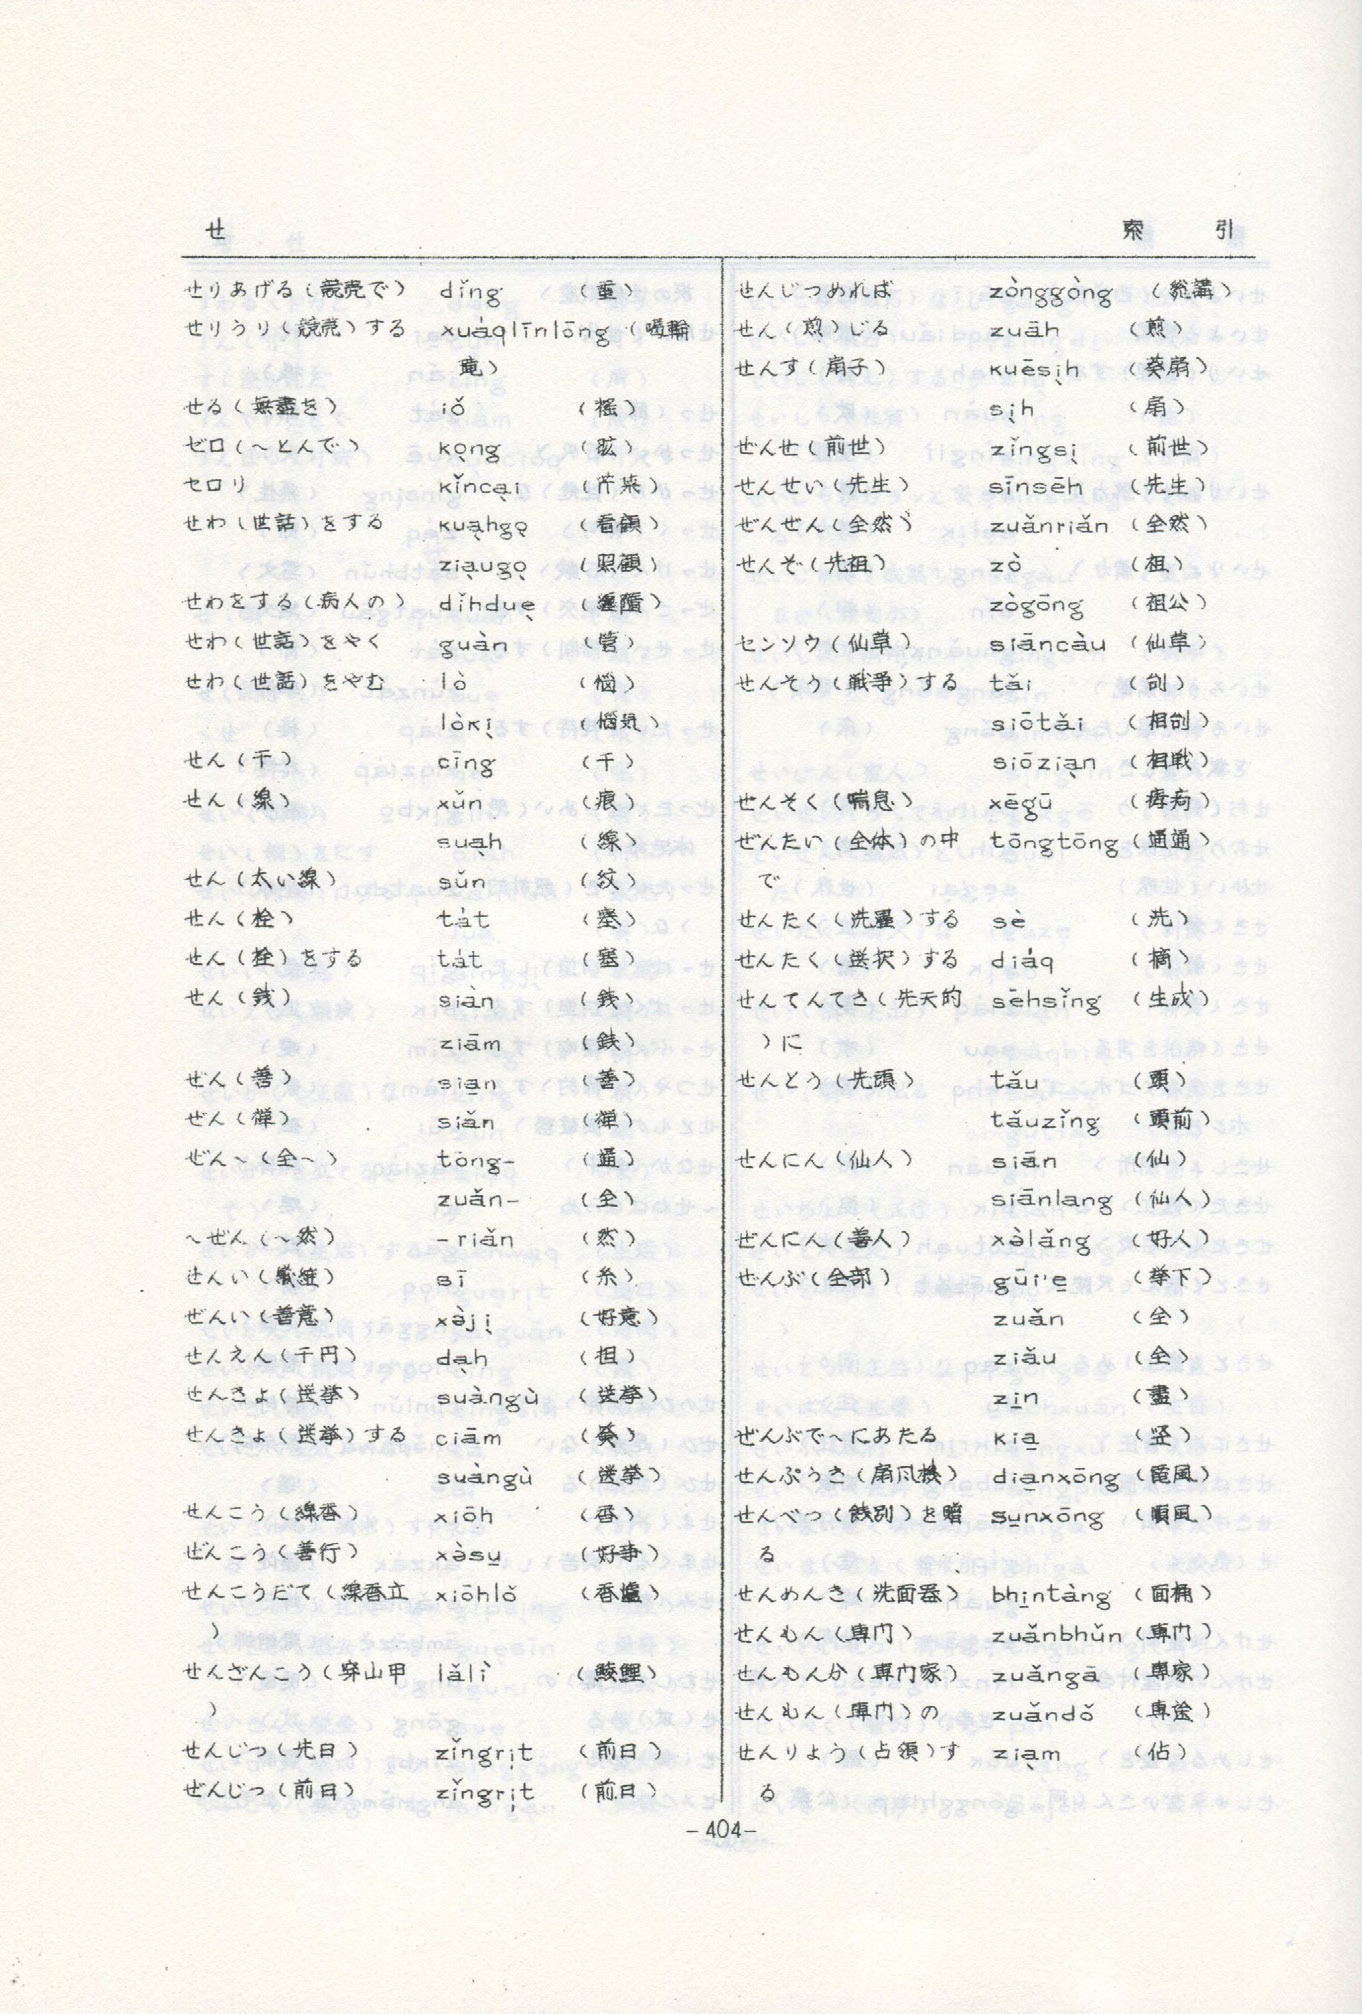 せ
索 引
せりあげる(競売で) dǐng (重)
せりうり(競売)する xuȧqlīnlōng (喝輪
竜)
せる(無盡を) iǒ (搖)
ゼロ(〜とんで) kọng (眩)
セロリ kǐncại (芹菜)
せわ(世話)をする kuạhgọ (看顧)
ziạugọ (照顧)
せわをする(病人の) dǐhduẹ
せわ(世話)をやく guàn (管)
せわ(世話)をやむ lò (悩)
lòkị (悩気)
せん(千) cīng (千)
せん(線) xǔn (痕)
suạh (線)
せん(太い線) sǔn (紋)
せん(栓) tȧt (塞)
せん(栓)をする tȧt (塞)
せん(銭) siàn (銭)
ziām
ぜん(善) sia̱n (善)
ぜん(禅) siǎn (禅)
ぜん〜(全〜) tōng- (通)
zuǎn- (全)
〜ぜん(〜然) -riǎn (然)
せんい(繊維) sī (糸)
ぜんい(善意) xə̀jị (好意)
せんえん(千円) dạh (担)
せんきよ(送挙) suàngù (送挙)
せんきよ(送挙)する ciām
suàngù (送挙)
せんこう(線香) xiōh (香)
ぜんこう(善行) xə̀su̱ (好事)
せんこうだて(線香立 xiōhlǒ (香爐)
)
せんざんこう(穿山甲 lǎlì (鯪鯉)
)
せんじつ(先日) zǐngrịt (前日)
ぜんじつ(前日) zǐngrịt (前日)
せんじつめれば zònggòng (総講)
せん(煎)じる zuāh (煎)
せんす(扇子) kuēsịh (葵扇)
sịh (扇)
ぜんせ(前世) zǐngsị (前世)
せんせい(先生) sīnsēh (先生)
ぜんぜん(全然) zuǎnriǎn (全然)
せんぞ(先祖) zò (祖)
zògōng (祖公)
センソウ(仙草) siāncàu (仙草)
せんそう(戦争)する tǎi (刣)
siōtǎi (相刣)
siōziạn (相戦)
せんそく(喘息) xēgū (痚疴)
ぜんたい(全体)の中 tōngtōng (通通)
で
せんたく(洗濯)する sè (洗)
せんたく(送択)する diȧq (摘)
せんてんてき(先天的 sēhsǐng (生成)
)に
せんとう(先頭) tǎu (頭)
tǎuzǐng (頭前)
せんにん(仙人) siān (仙)
siānlang (仙人)
ぜんにん(善人) xə̀lǎng (好人)
ぜんぶ(全部) gūi'e̱ (挙下)
zuǎn (全)
ziǎu (全)
zi̱n (盡)
ぜんぶで〜にあたる kia̱ (竪)
せんぷうき(扇風機) dia̱nxōng
せんべつ(餞別)を贈 su̱nxōng (順風)
る
せんめんき(洗面器) bhi̱ntàng (面桶)
せんもん(専门) zuǎnbhǔn (専门)
せんもんか(専门家) zuǎngā (専家)
せんもん(専门)の zuǎndǒ (専途)
せんりよう(占領)す ziạm (佔)
る
-404-